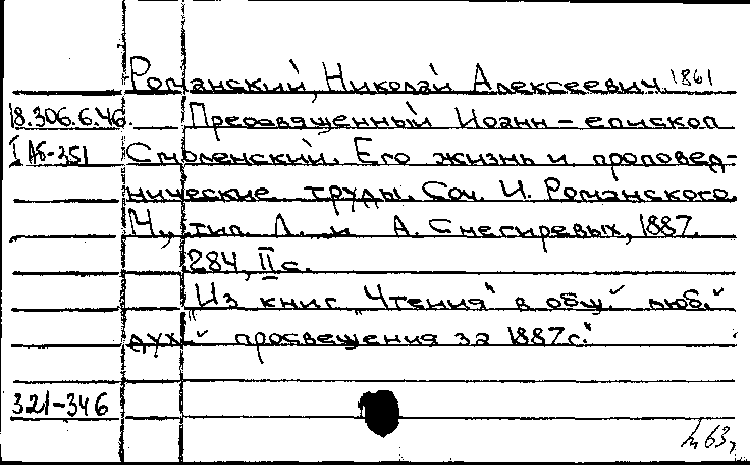 Романский, Николай Алексеевич. 1861
18.306.6.46. Преосвященный Иоанн – епископ
I Аб-351 Смоленский. Его жизнь и проповед-
нические труды. Соч. И. Романского.
М., тип. Л. и А. Снегиревых, 1887.
284, II с.
Из книг "Чтения" в общ. люб.
дух. просвещения за 1887 г."
321-346
63